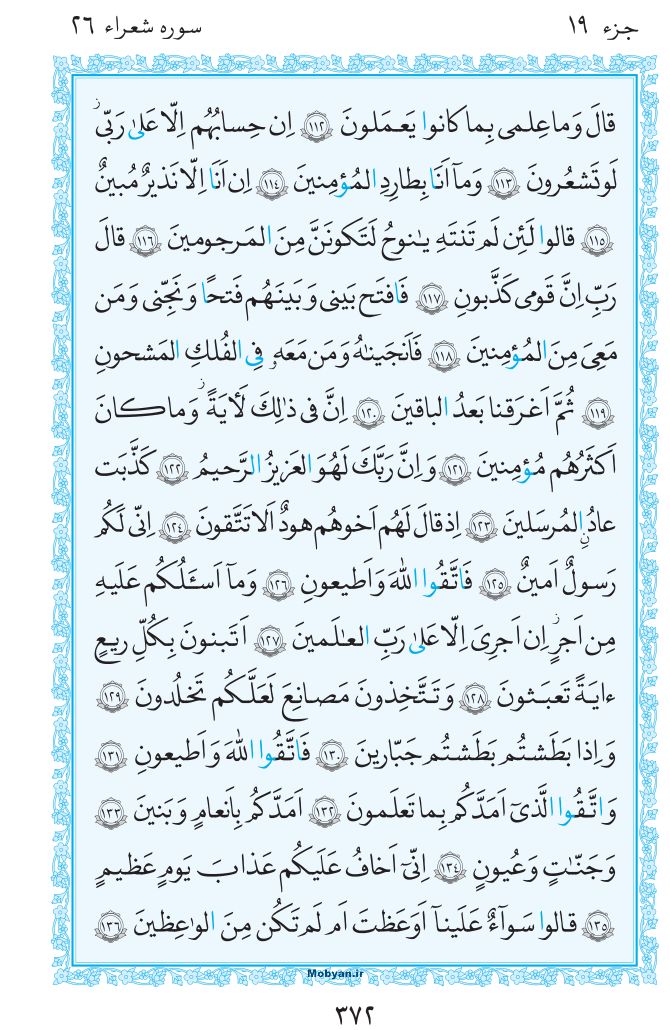 جزء ۱۹
سوره شعراء ۲۶
قالَ وَما عِلمی بِما کانوا یَعمَلونَ ۱۱۲ اِن حِسابُهُم اِلّا عَلیٰ رَبّی
لَو تَشعُرونَ ۱۱۳ وَمآ اَنَا بِطارِدِ المُؤمِنینَ ۱۱۴ اِن اَنَا اِلّا نَذیرٌ مُبینٌ
۱۱۵ قالوا لَئِن لَم تَنتَهِ یٰنوحُ لَتَکونَنَّ مِنَ المَرجومینَ ۱۱۶ قالَ
رَبِّ اِنَّ قَومی کَذَّبونِ ۱۱۷ فَافتَح بَینی وَ بَینَهُم فَتحًا وَ نَجِّنی وَ مَن
مَعِیَ مِنَ المُؤمِنینَ ۱۱۸ فَاَنجَینٰهُ وَ مَن مَعَهٗ فِی الفُلکِ المَشحونِ
۱۱۹ ثُمَّ اَغرَقنا بَعدُ الباقینَ ۱۲۰ اِنَّ فی ذٰلِکَ لَأٰیَةً وَ ما کانَ
اَکثَرُهُم مُؤمِنینَ ۱۲۱ وَ اِنَّ رَبَّکَ لَهُوَ العَزیزُ الرَّحیمُ ۱۲۲ کَذَّبَت
عادُنِ المُرسَلینَ ۱۲۳ اِذ قالَ لَهُم اَخوهُم هودٌ اَلا تَتَّقونَ ۱۲۴ اِنّی لَکُم
رَسولٌ اَمینٌ ۱۲۵ فَاتَّقُوا اللهَ وَ اَطیعونِ ۱۲۶ وَ مآ اَسـَٔلُکُم عَلَیهِ
مِن اَجرٍ اِن اَجرِیَ اِلّا عَلیٰ رَبِّ العٰلَمینَ ۱۲۷ اَتَبنونَ بِکُلِّ ریعٍ
ءایَةً تَعبَثونَ ۱۲۸ وَ تَتَّخِذونَ مَصانِعَ لَعَلَّکُم تَخلُدونَ ۱۲۹
وَ اِذا بَطَشتُم بَطَشتُم جَبّارینَ ۱۳۰ فَاتَّقُوا اللهَ وَ اَطیعونِ ۱۳۱
وَ اتَّقُوا الَّذیٓ اَمَدَّکُم بِما تَعلَمونَ ۱۳۲ اَمَدَّکُم بِاَنعامٍ وَ بَنینَ ۱۳۳
وَ جَنّٰتٍ وَ عُیُونٍ ۱۳۴ اِنّیٓ اَخافُ عَلَیکُم عَذابَ یَومٍ عَظیمٍ
۱۳۵ قالوا سَوآءٌ عَلَینآ اَوَعَظتَ اَم لَم تَکُن مِنَ الوٰعِظینَ ۱۳۶
Mobyan.ir
۳۷۲